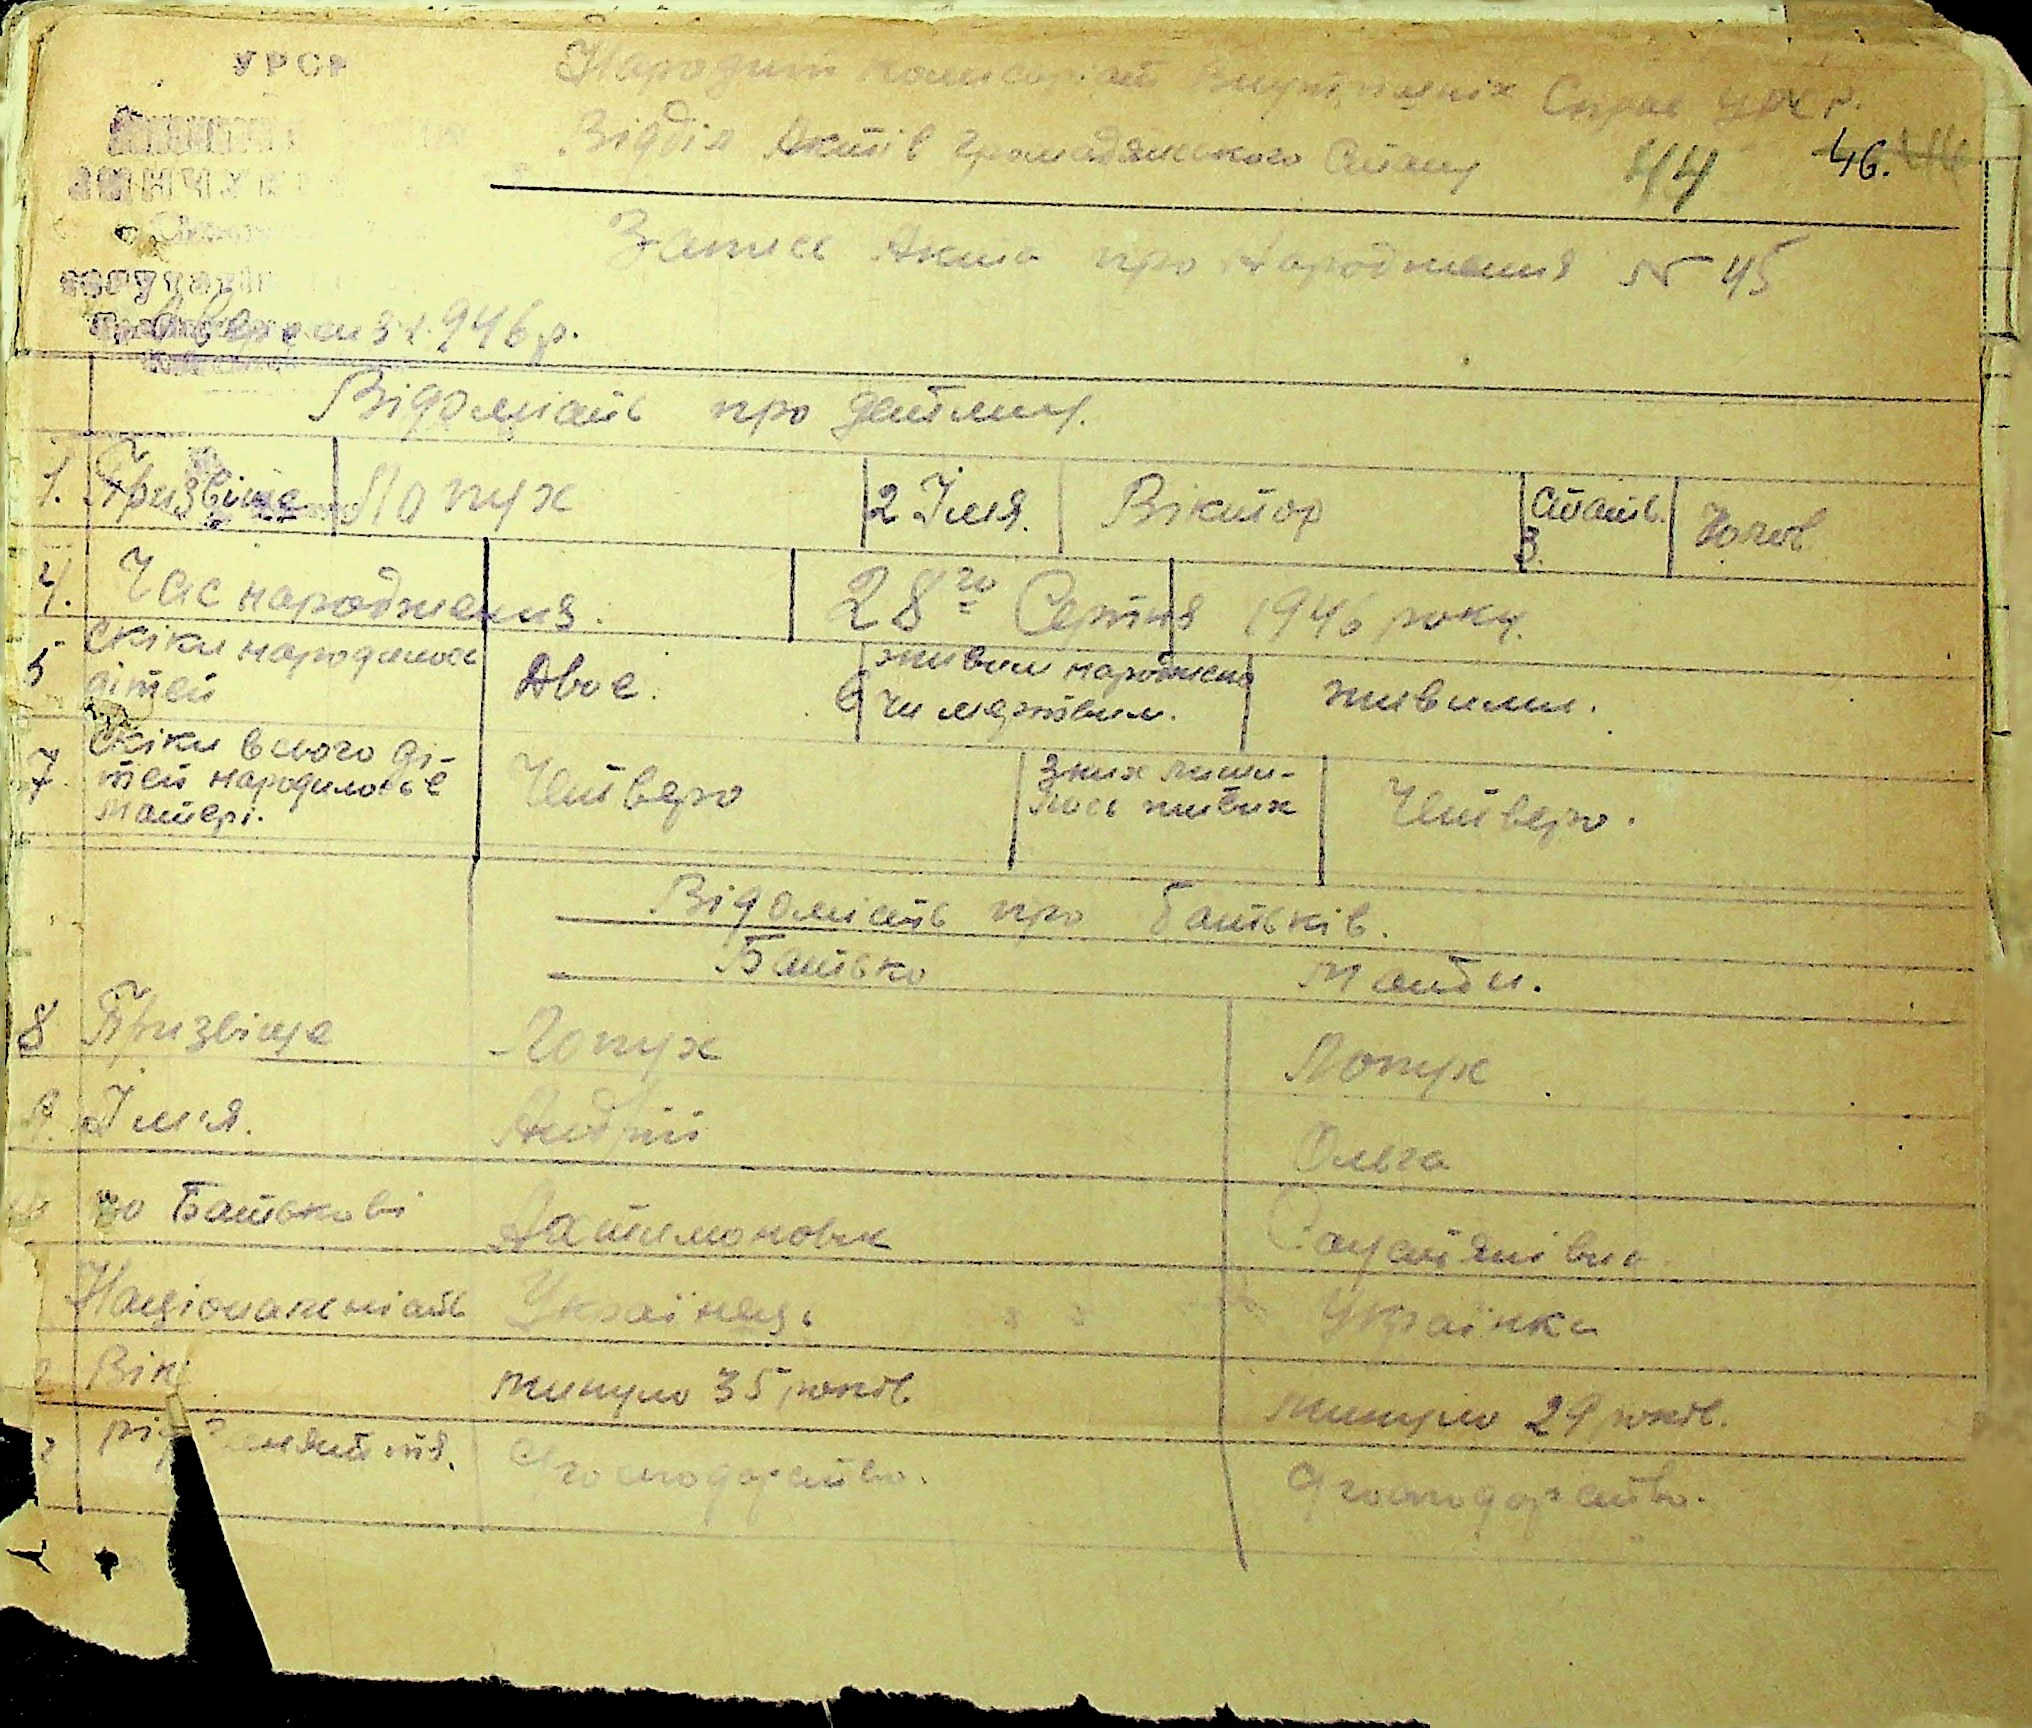 УРСР
Народний комісаріат Внутрішніх Справ УРСР.
Відділ Актів Громадянського Стану 44 46.
Запись Акта про Народження № 45
Вересня 3 1946 р.
Відомість про дитину.
1. Призвіще Лопух 2 Імя. Віктор Стать. 3. Чолов
4. Час народження. 28го Серпня 1946 року.
5 Скіки народилось дітей Двоє. 6 живим народжено чи мертвим. живими.
7 Скіки всього ді-
тей народилось є
матері. Четверо З них лиши-
лось живих Четверо.
Відомість про батьків.
Батько Мати.
8 Призвіще Лопух Лопух
9. Імя. Андрій Ольга
10 по Батькові
Національність Українець Українка
Вік минуло 35 років минуло 29 років.
заняття. господарство. господарство.